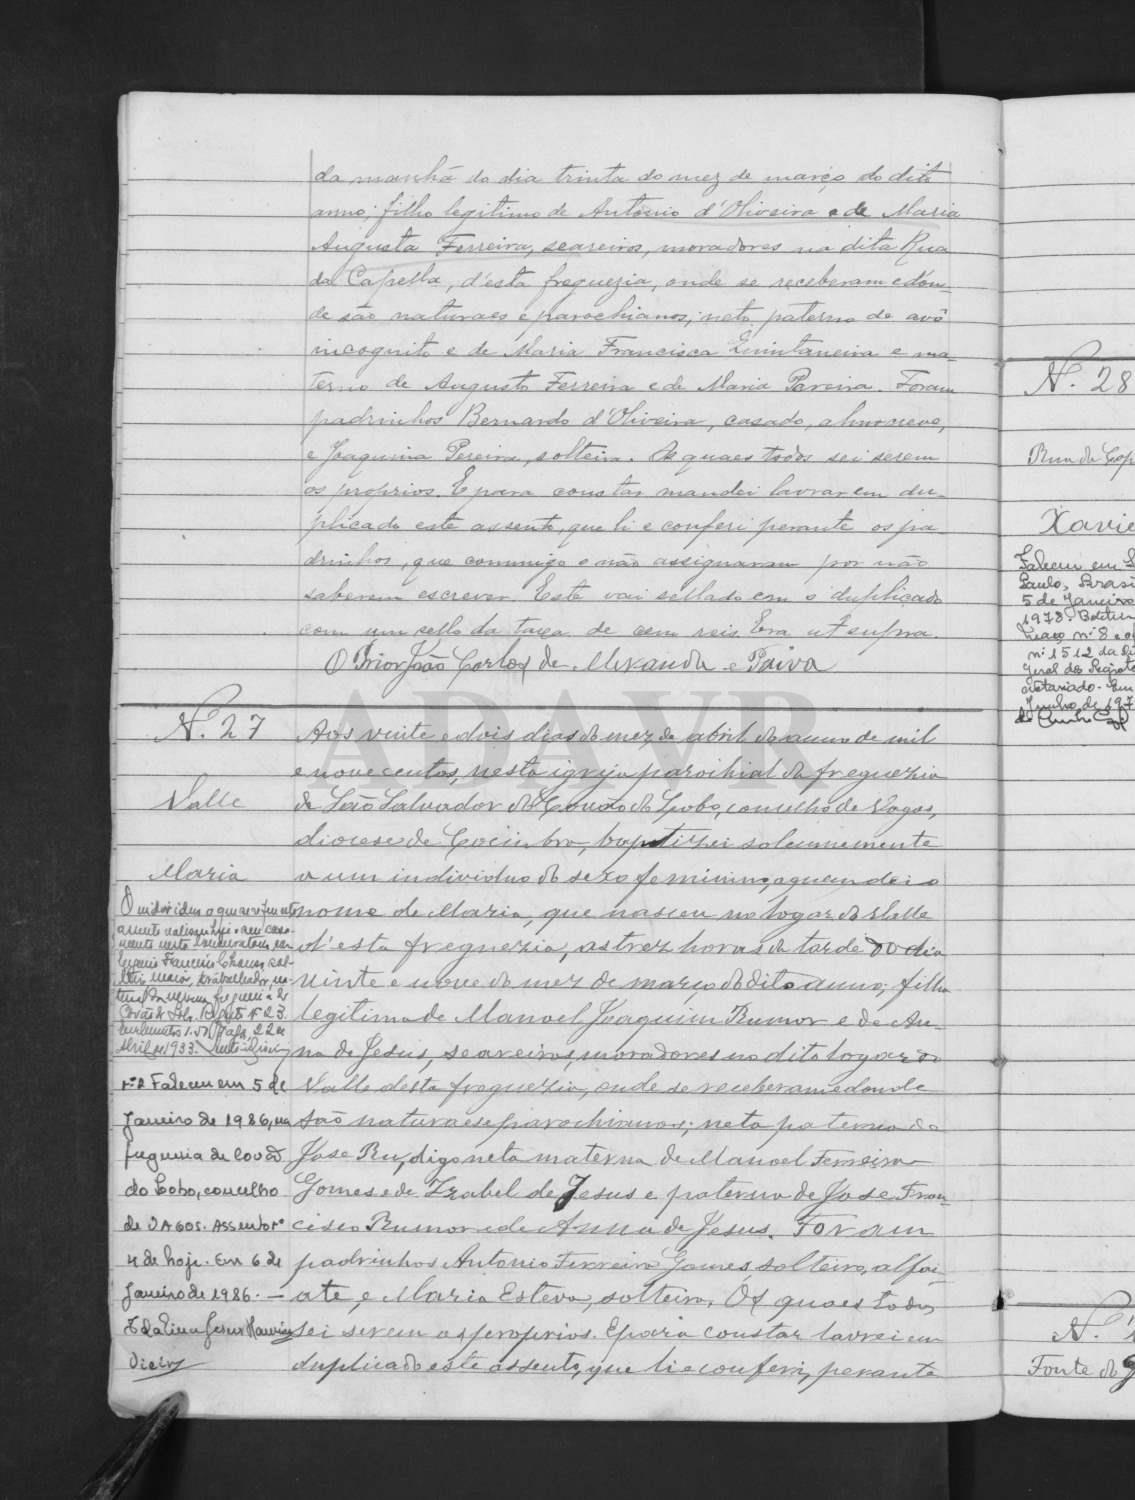 da manhã do dia trinta do mez de março do dito
anno; filho legitimo de Antonio d'Oliveira e de Maria
Augusta Ferreira, seareiros, moradores na dita Rua
da Capella, d'esta freguezia, onde se receberam e d'on-
de são naturaes e parochianos; neto paterno de avô
incognito e de Maria Francisca Quintaneira e ma-
terno de Augusto Ferreira e de Maria Pereira. Foram
padrinhos Bernardo d'Oliveira, casado, almocreve,
e Joaquina Pereira, solteira. Os quaes todos sei serem
os proprios. E para constar mandei lavrar em du-
plicado este assento, que li e conferi perante os pa-
drinhos, que commigo não assignaram por não
saberem escrever. Este vai sellado com o duplicado
com um sello da taxa de cem reis. Era ut supra.
O Prior João Carlos de Miranda e Paiva
ADAVR
N. 27
Valle
Maria
Aos vinte e dois dias do mez de abril do anno de mil
e novecentos, nesta igreja parochial da freguezia
de São Salvador do Covão do Lobo, concelho de Vagos,
diocese de Coimbra, baptizei solemnemente
a um individuo do sexo feminino, a quem dei o
nome de Maria, que nasceu no logar do Valle
d'esta freguezia, as trez horas da tarde do dia
vinte e nove do mez de março do dito anno, filha
legitima de Manoel Joaquim Rumor e de An-
na de Jesus, seareiros, moradores no dito logar do
Valle desta freguezia, onde se receberam e donde
são naturaes e parochianos; neta paterna de
Jose Ru, digo neta materna de Manoel Ferreira
Gomes e de Izabel de Jesus e paterna de Jose Fran-
cisco Rumor e de Anna de Jesus. Foram
padrinhos Antonio Ferreira Gomes, solteiro, alfai-
ate, e Maria Esteva, solteira. Os quaes todos
sei serem os proprios. E para constar lavrei em
duplicado este assento, que li e conferi, perante
O individuo a que se refere este
assento realisou hoje o seu casa-
mento nesta
Francisco Chaves, sol-
teiro, maior, trabalhador, na-
tural da mesma freguesia de
Covão do Lobo.
22 de
Abril de 1933.
Nº 2 Faleceu em 5 de
Janeiro de 1986, na
freguesia de Covão
do Lobo, concelho
de Vagos. Assento nº
4 de hoje. Em 6 de
Janeiro de 1986. —
N. 28
Rua da Cap
Xavie
Faleceu em S
Paulo, Brasi
5 de Janeiro
1978. Boletim
nº 8
nº 1512 da Di
Geral dos Registos
Notariado. Em
Junho de 197
N.
Fonte do G